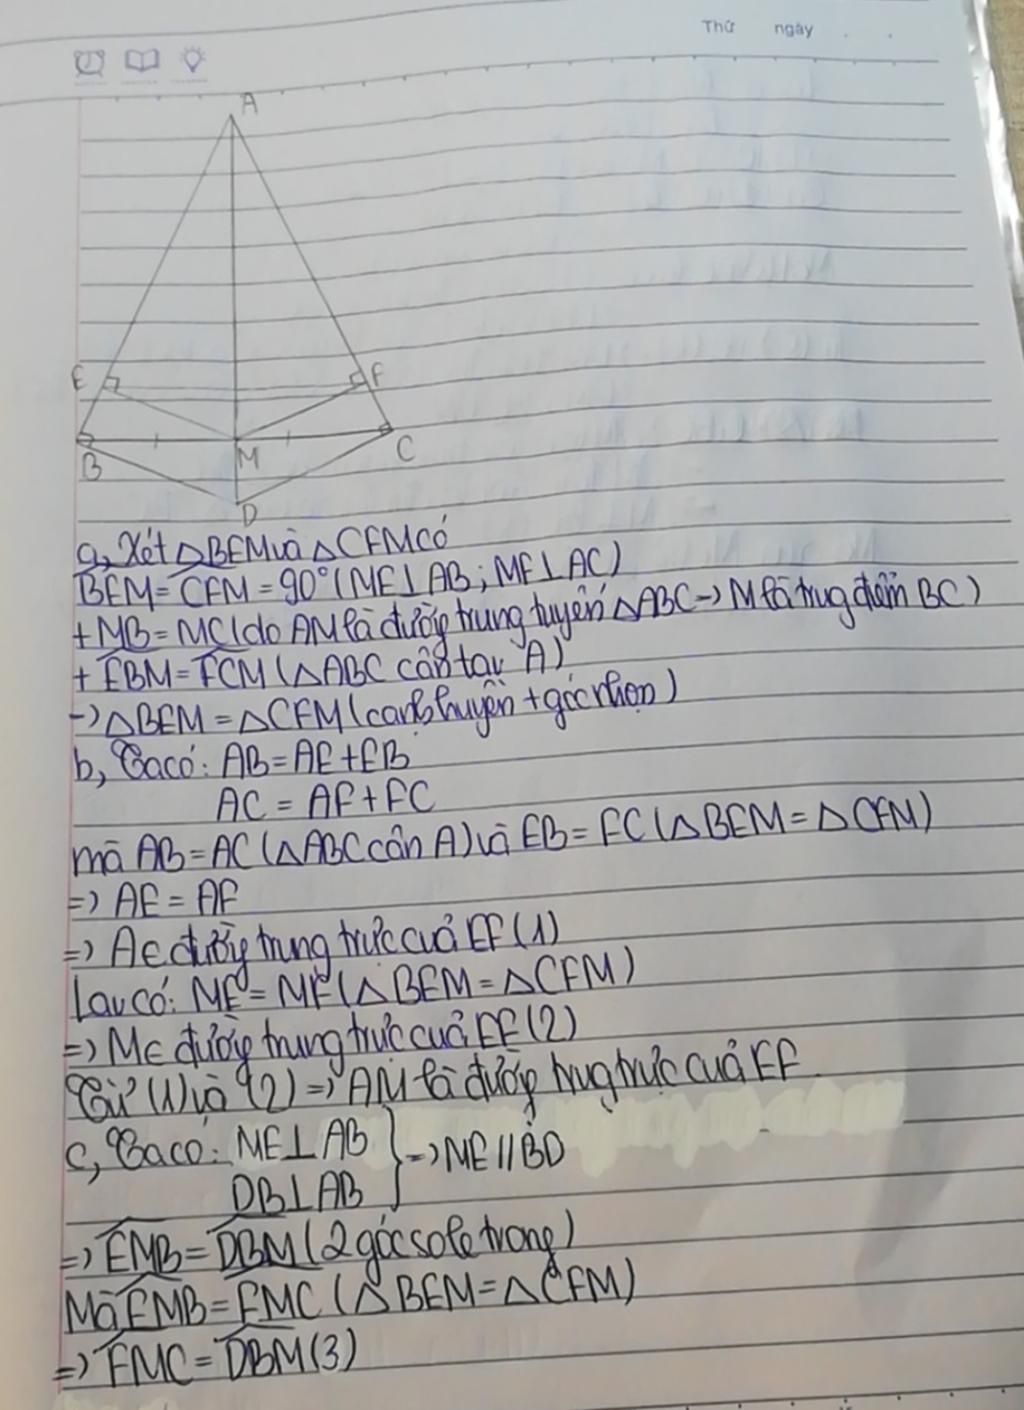 Thứ ngày . .
A
E F
B M C
D
a, Xét △BEM và △CFM có
BEM = CFM = 90° (ME⊥AB; MF⊥AC)
+ MB = MC (do AM là đường trung tuyến △ABC -> M là trug điểm BC)
+ EBM = FCM (△ABC cân tại A)
-> △BEM = △CFM (cạnh huyền + góc nhọn)
b, Ta có: AB = AE + EB
AC = AF + FC
mà AB = AC (△ABC cân A) và EB = FC (△BEM = △CFM)
=> AE = AF
=> A∈ đường trung trực của EF (1)
Lại có: ME = MF (△BEM = △CFM)
=> M∈ đường trung trực của EF (2)
Từ (1) và (2) => AM là đường trug trực của EF
c, Ta có: ME⊥AB } => ME // BD
DB⊥AB
=> EMB = DBM (2 góc so le trong)
Mà EMB = FMC (△BEM = △CFM)
=> FMC = DBM (3)